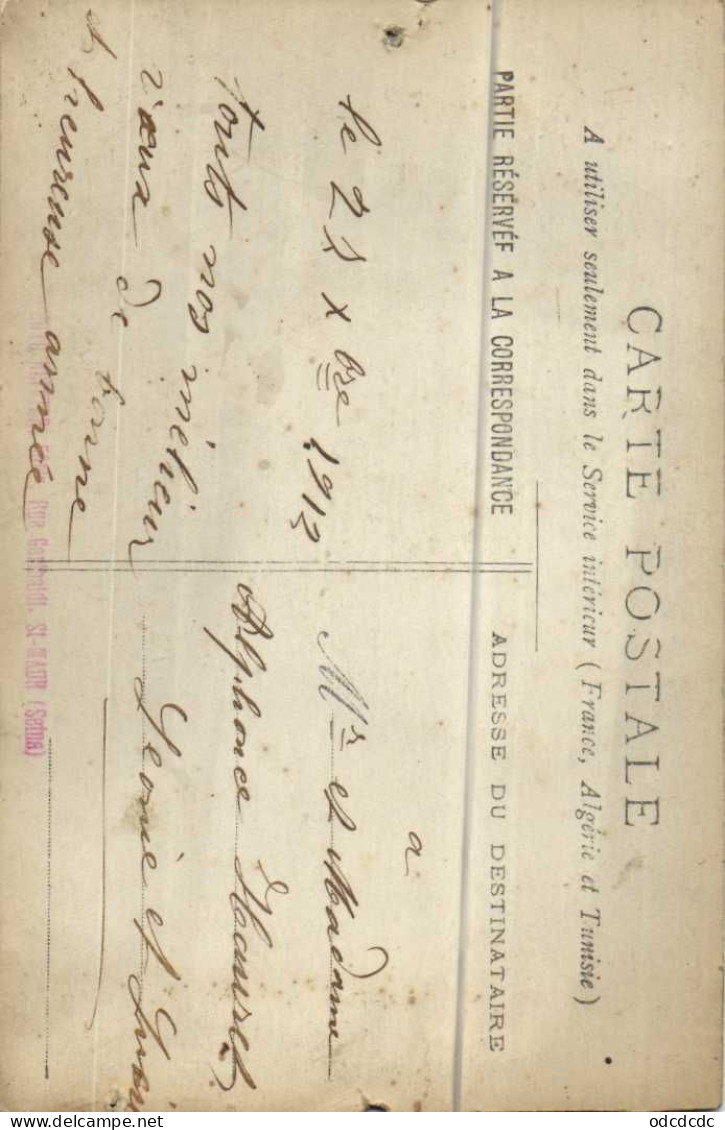 CARTE POSTALE
A utiliser seulement dans le Service intérieur (France, Algérie et Tunisie)
PARTIE RÉSERVÉE A LA CORRESPONDANCE
ADRESSE DU DESTINATAIRE
le 21 xbre 1912
touts nos mélieur
vœux de bonne
et heureuse année
a
Mr et Madame
Alphonce Hauret
Léonie et
Rue Garibaldi, St-MAUR (Seine)
odcdcdc